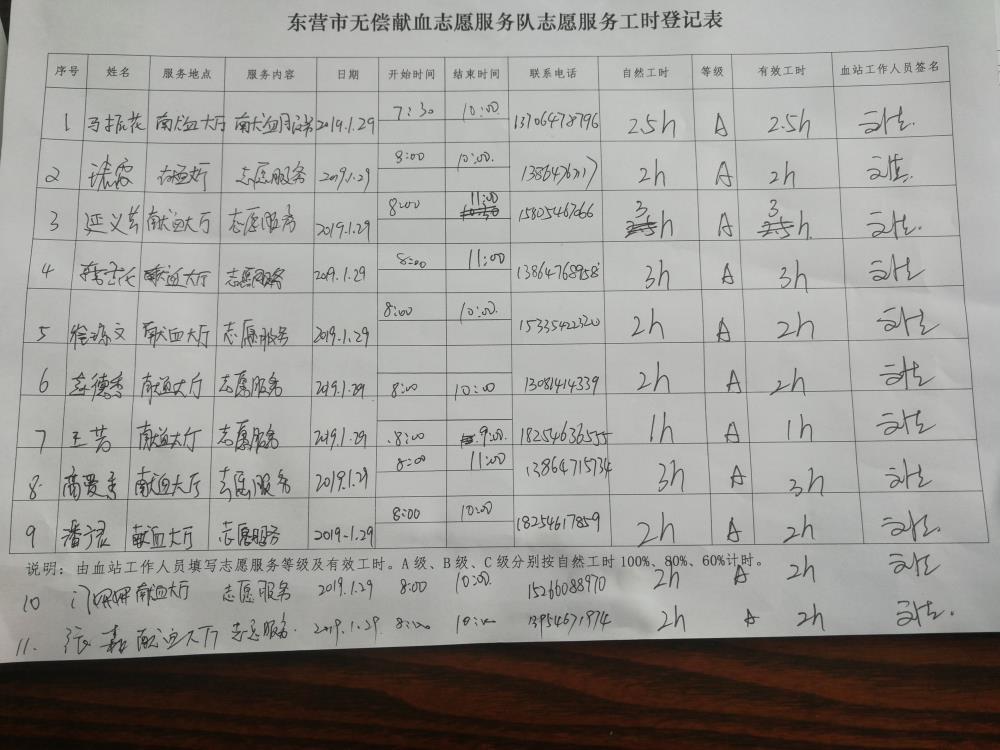 东营市无偿献血志愿服务队志愿服务工时登记表
序号 姓名 服务地点 服务内容 日期 开始时间 结束时间 联系电话 自然工时 等级 有效工时 血站工作人员签名
1 马振花 献血大厅 2019.1.29 7:30 10:00 13706478796 2.5h A 2.5h
2 志愿服务 2019.1.29 8:00 10:00. 2h A 2h
3 延义芳 献血大厅 志愿服务 2019.1.29 8:00 11:00 15805467066 3h A 3h.
4 献血大厅 志愿服务 2019.1.29 8:00 11:00 13864768958 3h A 3h
5 献血大厅 志愿服务 2019.1.29 8:00 10:00. 15335422320 2h A 2h
6 献血大厅 志愿服务 2019.1.29 8:00 10:00 13081414339 2h A 2h
7 王芳 献血大厅 志愿服务 2019.1.29 8:00 9:00. 18254636555 1h A 1h
8. 商爱秀 献血大厅 志愿服务 2019.1.29 8:00 11:00 13864715734 3h A 3h
9 献血大厅 志愿服务 2019.1.29 8:00 10:00 18254617859 2h A 2h
说明：由血站工作人员填写志愿服务等级及有效工时。A级、B级、C级分别按自然工时100%、80%、60%计时。
10 献血大厅 志愿服务 2019.1.29 8:00 10:00. 15266088970 2h A 2h
11. 张 献血大厅 志愿服务. 2019.1.29. 8:00 10:00 13954671974 2h A 2h